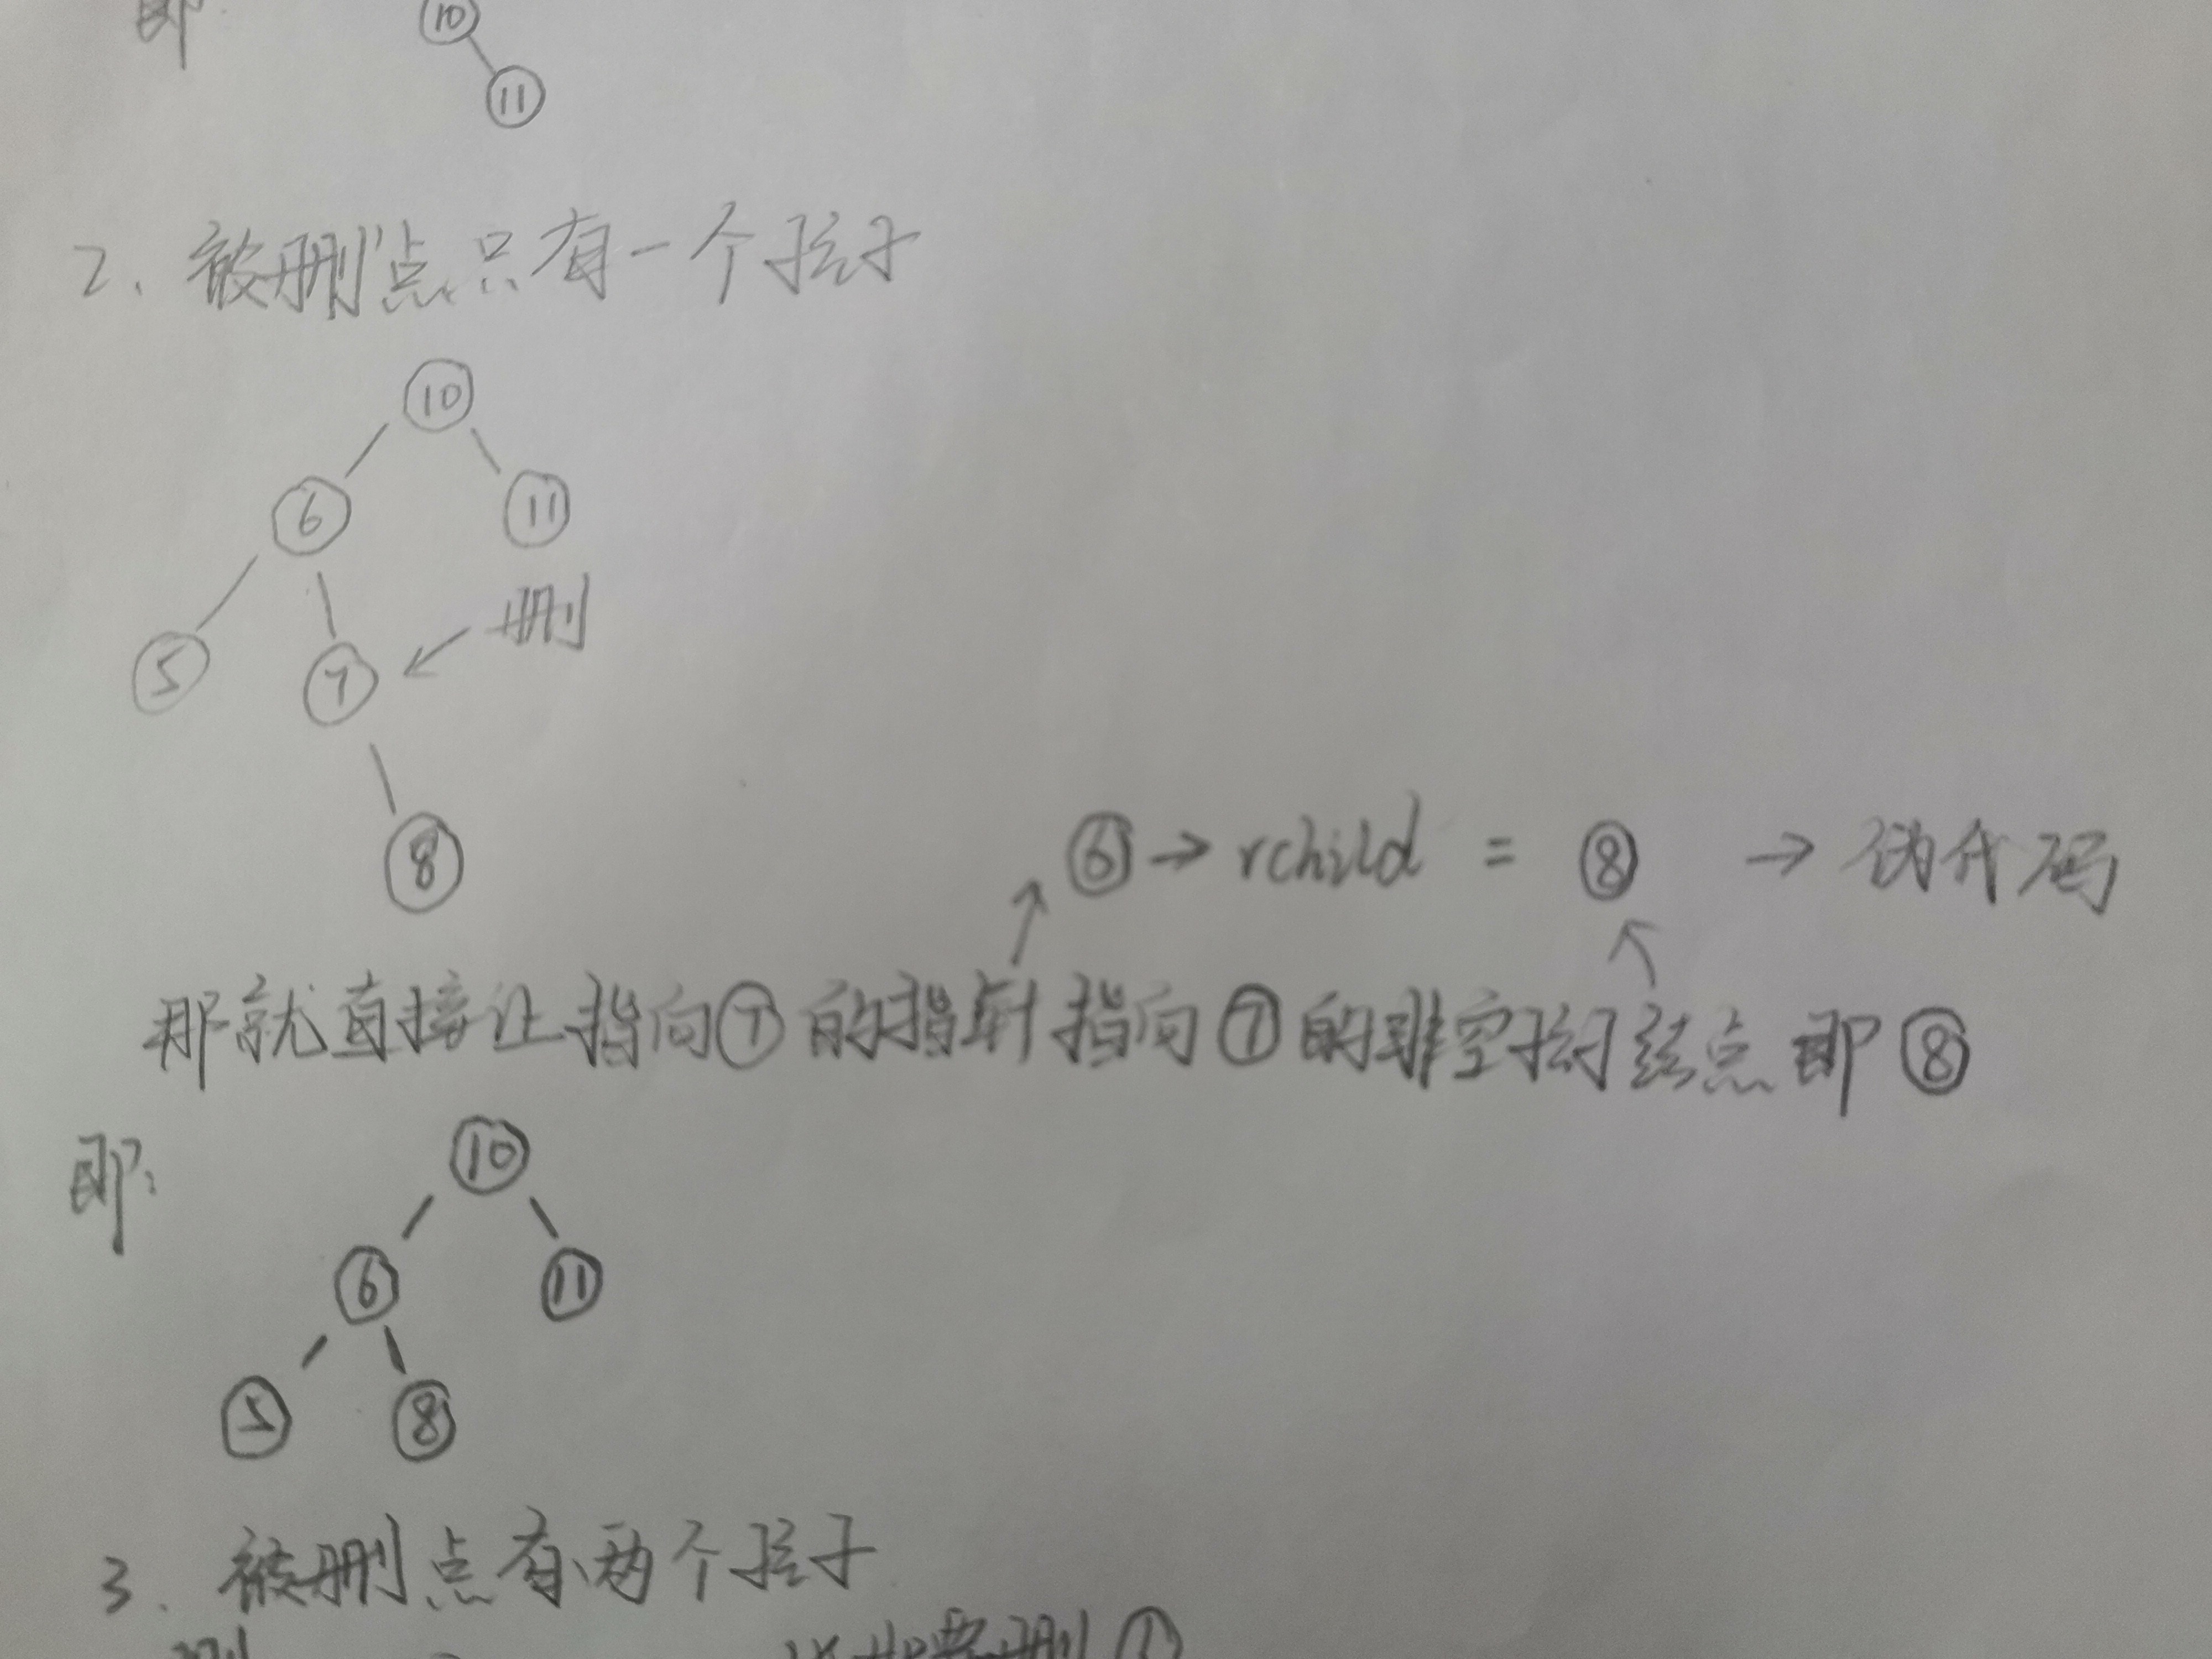 即 ⑩
⑪
2、被删点只有一个孩子
⑩
⑥ ⑪
删
⑤ ⑦
⑧
⑥→rchild = ⑧ → 伪代码
那就直接让指向⑦的指针指向⑦的非空孩子结点即⑧
即:
⑩
⑥ ⑪
⑤ ⑧
3、被删点有两个孩子
要删